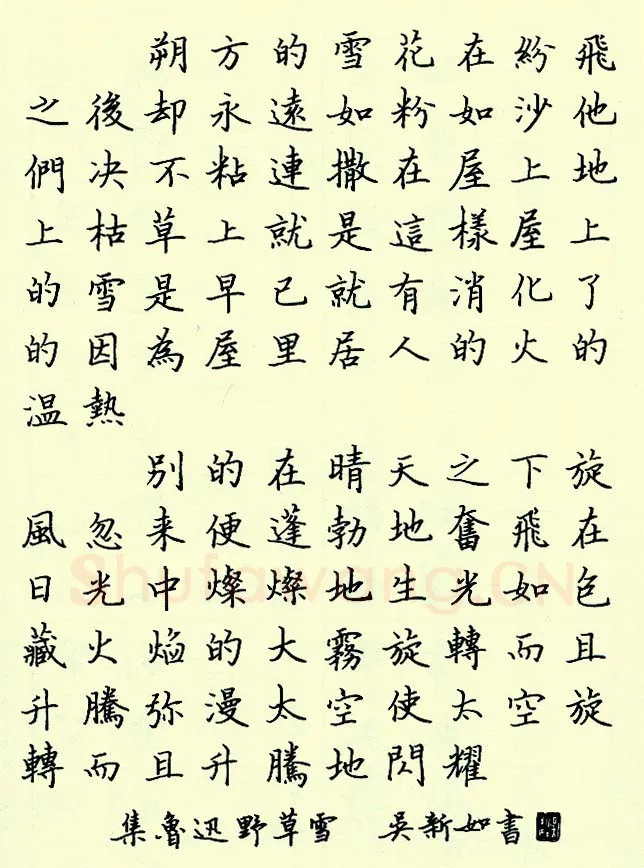 朔方的雪花在紛飛
之後却永遠如粉如沙他
們决不粘連撒在屋上地
上枯草上就是這樣屋上
的雪是早已就有消化了
的因為屋里居人的火的
温熱
别的在晴天之下旋
風忽来便蓬勃地奮飛在
日光中燦燦地生光如包
藏火焰的大霧旋轉而且
升騰弥漫太空使太空旋
轉而且升騰地閃耀
集魯迅野草雪 吳新如書
Shufawang.CN